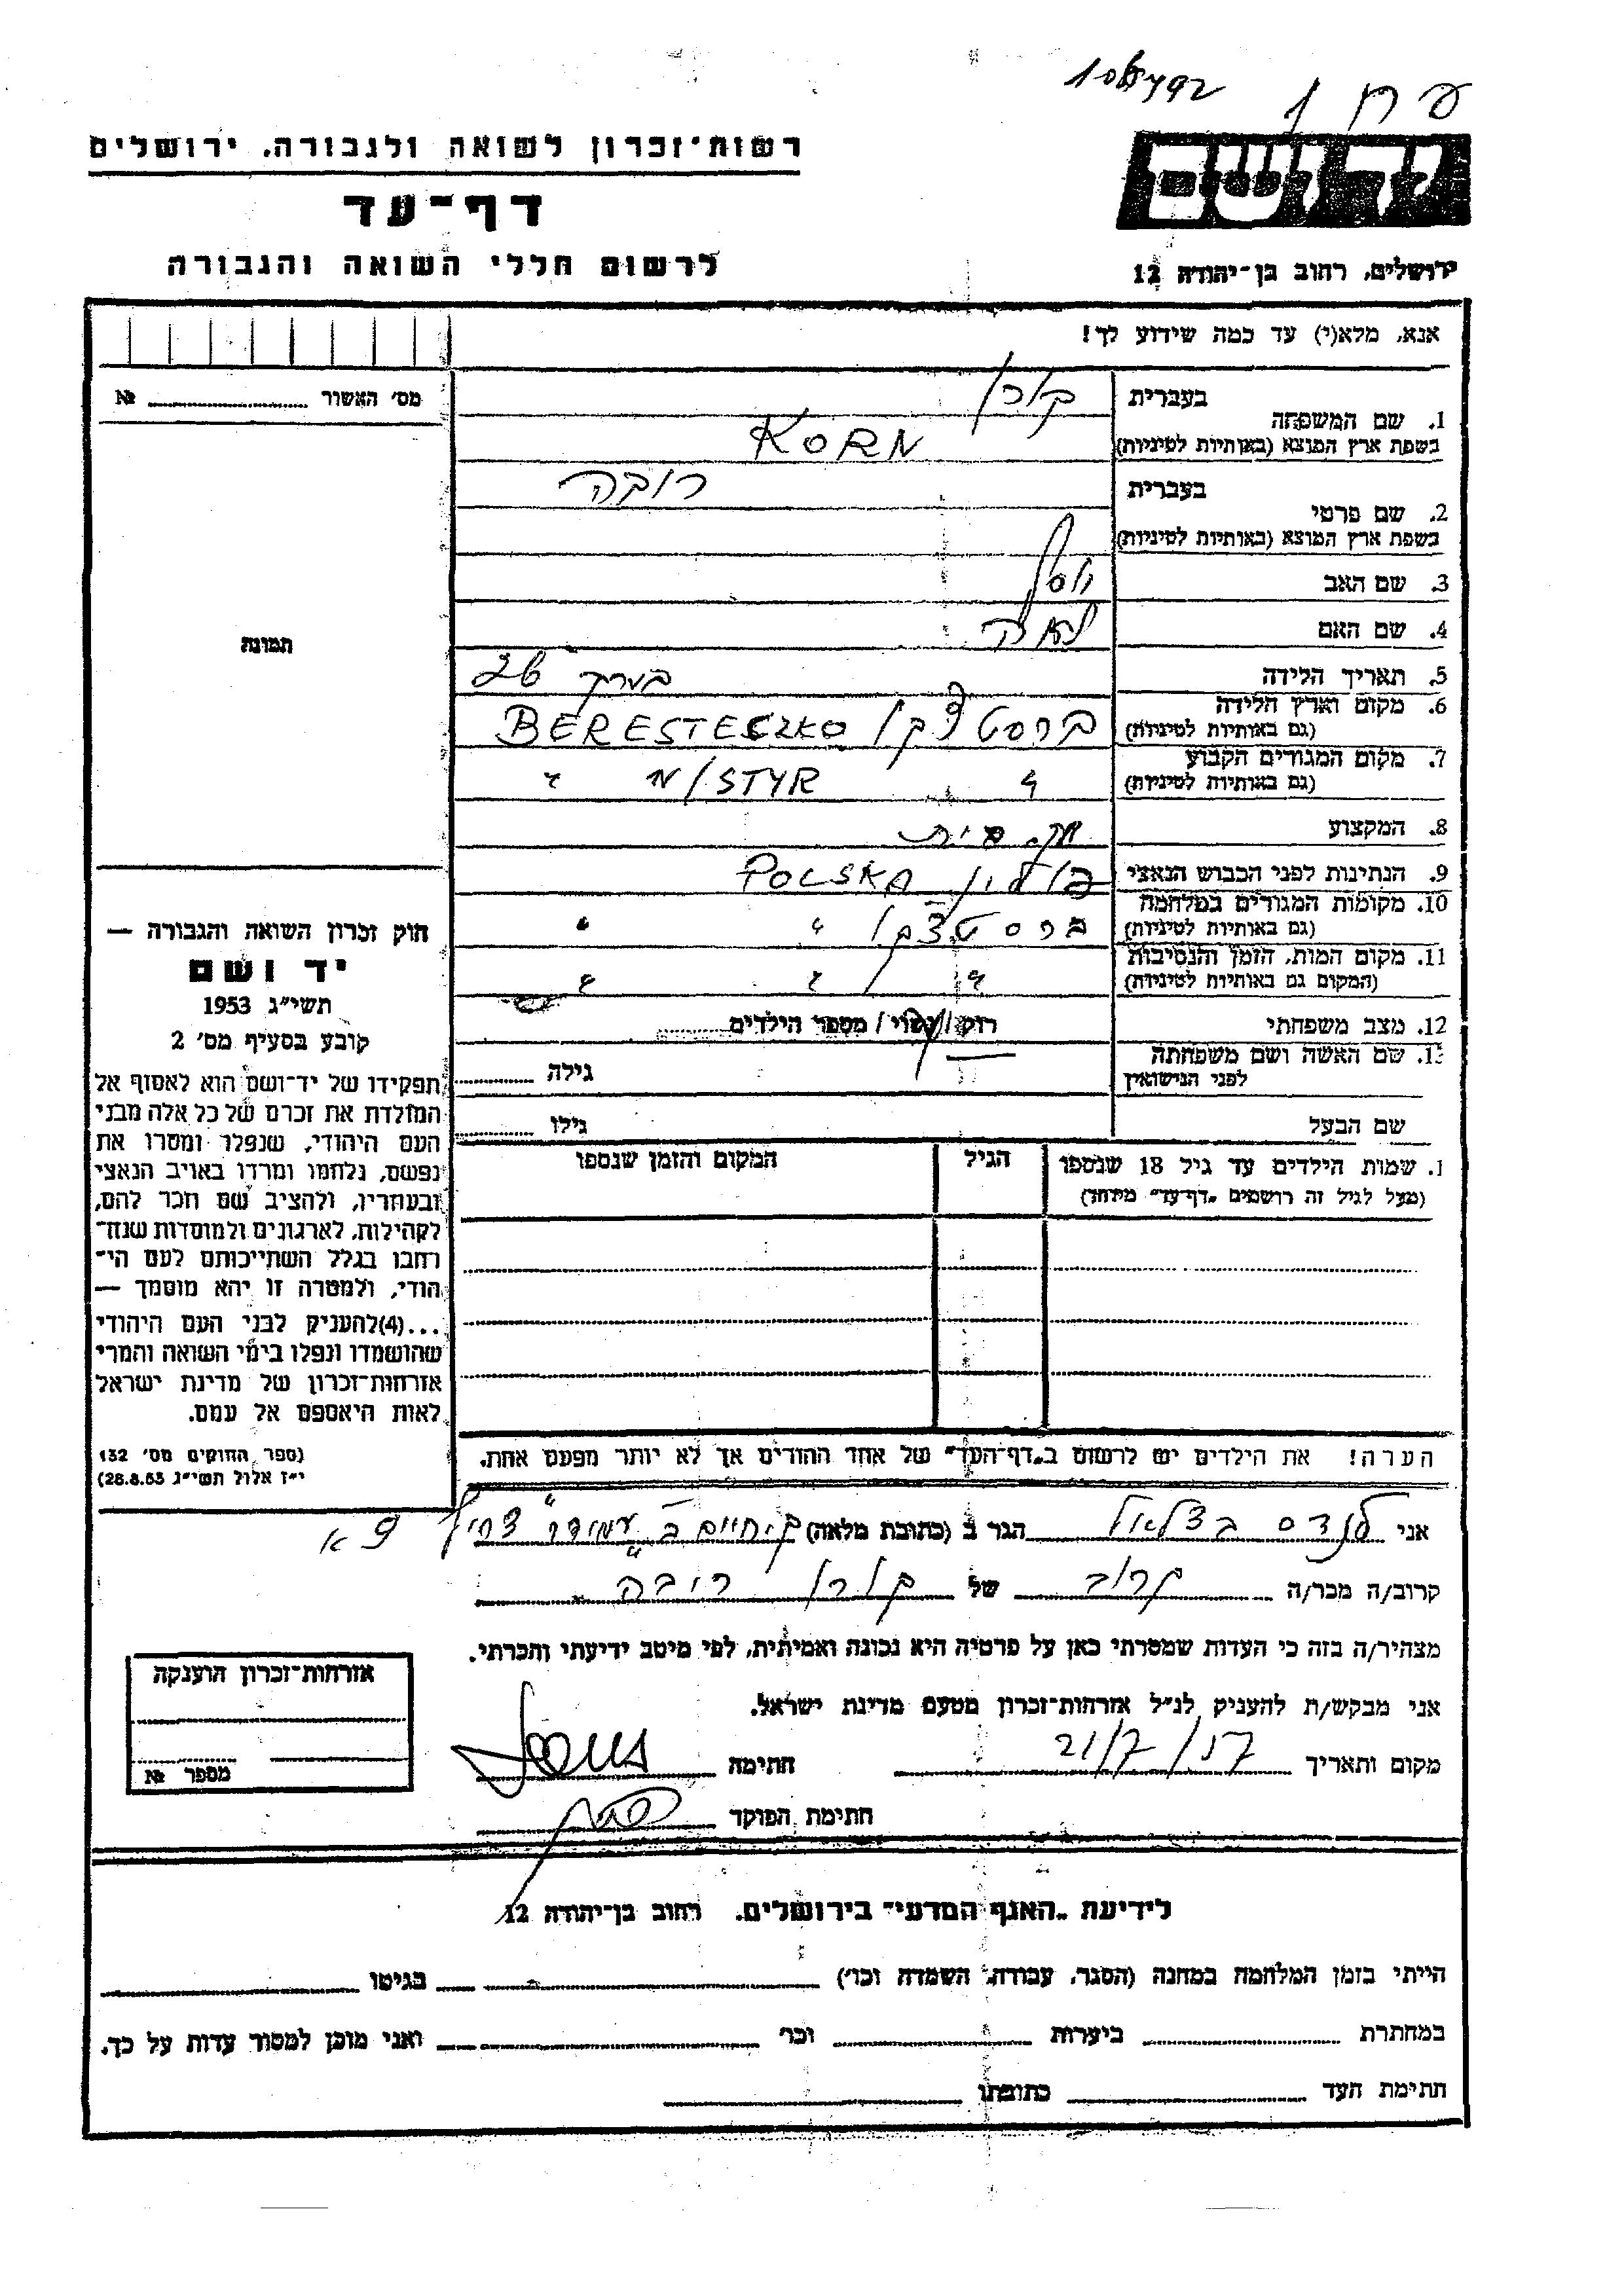 ק ר ן
רשות־זכרון לשואה ולגבורה, ירושלים
יד ושם
דף־עד
לרשום חללי השואה והגבורה
ירושלים, רחוב בן־יהודה 12
אנא, מלא(י) עד כמה שידוע לך!
מס׳ האשור № 
1. שם המשפחה בעברית קורן
בשפת ארץ המוצא (באותיות לטיניות) KORN
2. שם פרטי בעברית רובה
בשפת ארץ המוצא (באותיות לטיניות)
3. שם האב יוסף
4. שם האם לאה
תמונה
5. תאריך הלידה בערך 26
6. מקום וארץ הלידה
(גם באותיות לטיניות) ברסטצקו BERESTECZKO
7. מקום המגורים הקבוע
(גם באותיות לטיניות) " N/STYR "
8. המקצוע עק. בית
9. הנתינות לפני הכבוש הנאצי פולין POLSKA
10. מקומות המגורים במלחמה
(גם באותיות לטיניות) ברסטצקו " "
11. מקום המות, הזמן והנסיבות
(המקום גם באותיות לטיניות) " " "
12. מצב משפחתי רוק / נשוי / מספר הילדים
13. שם האשה ושם משפחתה
לפני הנישואין גילה
שם הבעל גילו
חוק זכרון השואה והגבורה —
יד ושם
תשי״ג 1953
קובע בסעיף מס׳ 2
תפקידו של יד־ושם הוא לאסוף אל
המולדת את זכרם של כל אלה מבני
העם היהודי, שנפלו ומסרו את
נפשם, נלחמו ומרדו באויב הנאצי
ובעוזריו, ולהציב שם וזכר להם,
לקהילות, לארגונים ולמוסדות שנח־
רבו בגלל השתייכותם לעם הי־
הודי, ולמטרה זו יהא מוסמך —
...(4)להעניק לבני העם היהודי
שהושמדו ונפלו בימי השואה והמרי
אזרחות־זכרון של מדינת ישראל
לאות היאספם אל עמם.
(ספר החוקים מס׳ 132
י״ז אלול תשי״ג 28.8.53)
1. שמות הילדים עד גיל 18 שנספו הגיל המקום והזמן שנספו
(מעל לגיל זה רושמים „דף־עד״ מיוחד)
הערה! את הילדים יש לרשום ב„דף־העד״ של אחד ההורים אך לא יותר מפעם אחת.
אני לנדס בצלאל הגר ב (כתובת מלאה) ק. חיים ב״ עמידר צריף 9 א
קרוב/ה מכר/ה קרוב של קורן ריבה
מצהיר/ה בזה כי העדות שמסרתי כאן על פרטיה היא נכונה ואמיתית, לפי מיטב ידיעתי והכרתי.
אני מבקש/ת להעניק לנ״ל אזרחות־זכרון מטעם מדינת ישראל.
מקום ותאריך 21/7/57 חתימה
חתימת הפוקד
אזרחות־זכרון הוענקה
מספר №
לידיעת „האגף המדעי״ בירושלים. רחוב בן־יהודה 12
הייתי בזמן המלחמה במחנה (הסגר, עבודה, השמדה וכו׳) בגיטו
במחתרת ביערות וכו׳ ואני מוכן למסור עדות על כך.
חתימת העד כתובתו